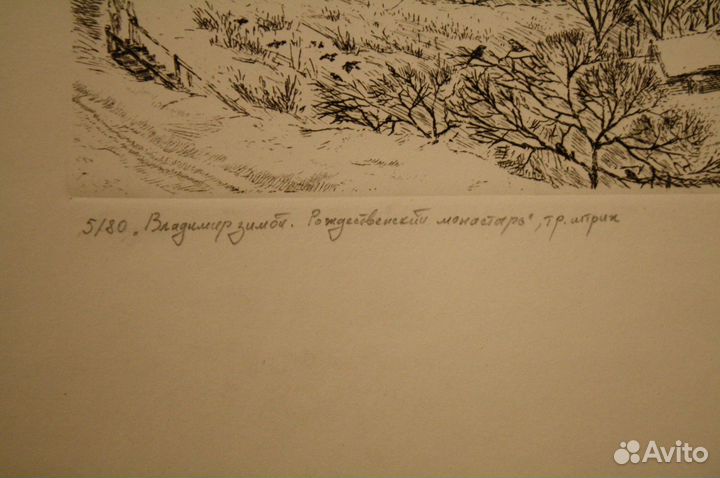 5/80 „Владимир зимой. Рождественский монастырь", тр. штрих
Avito